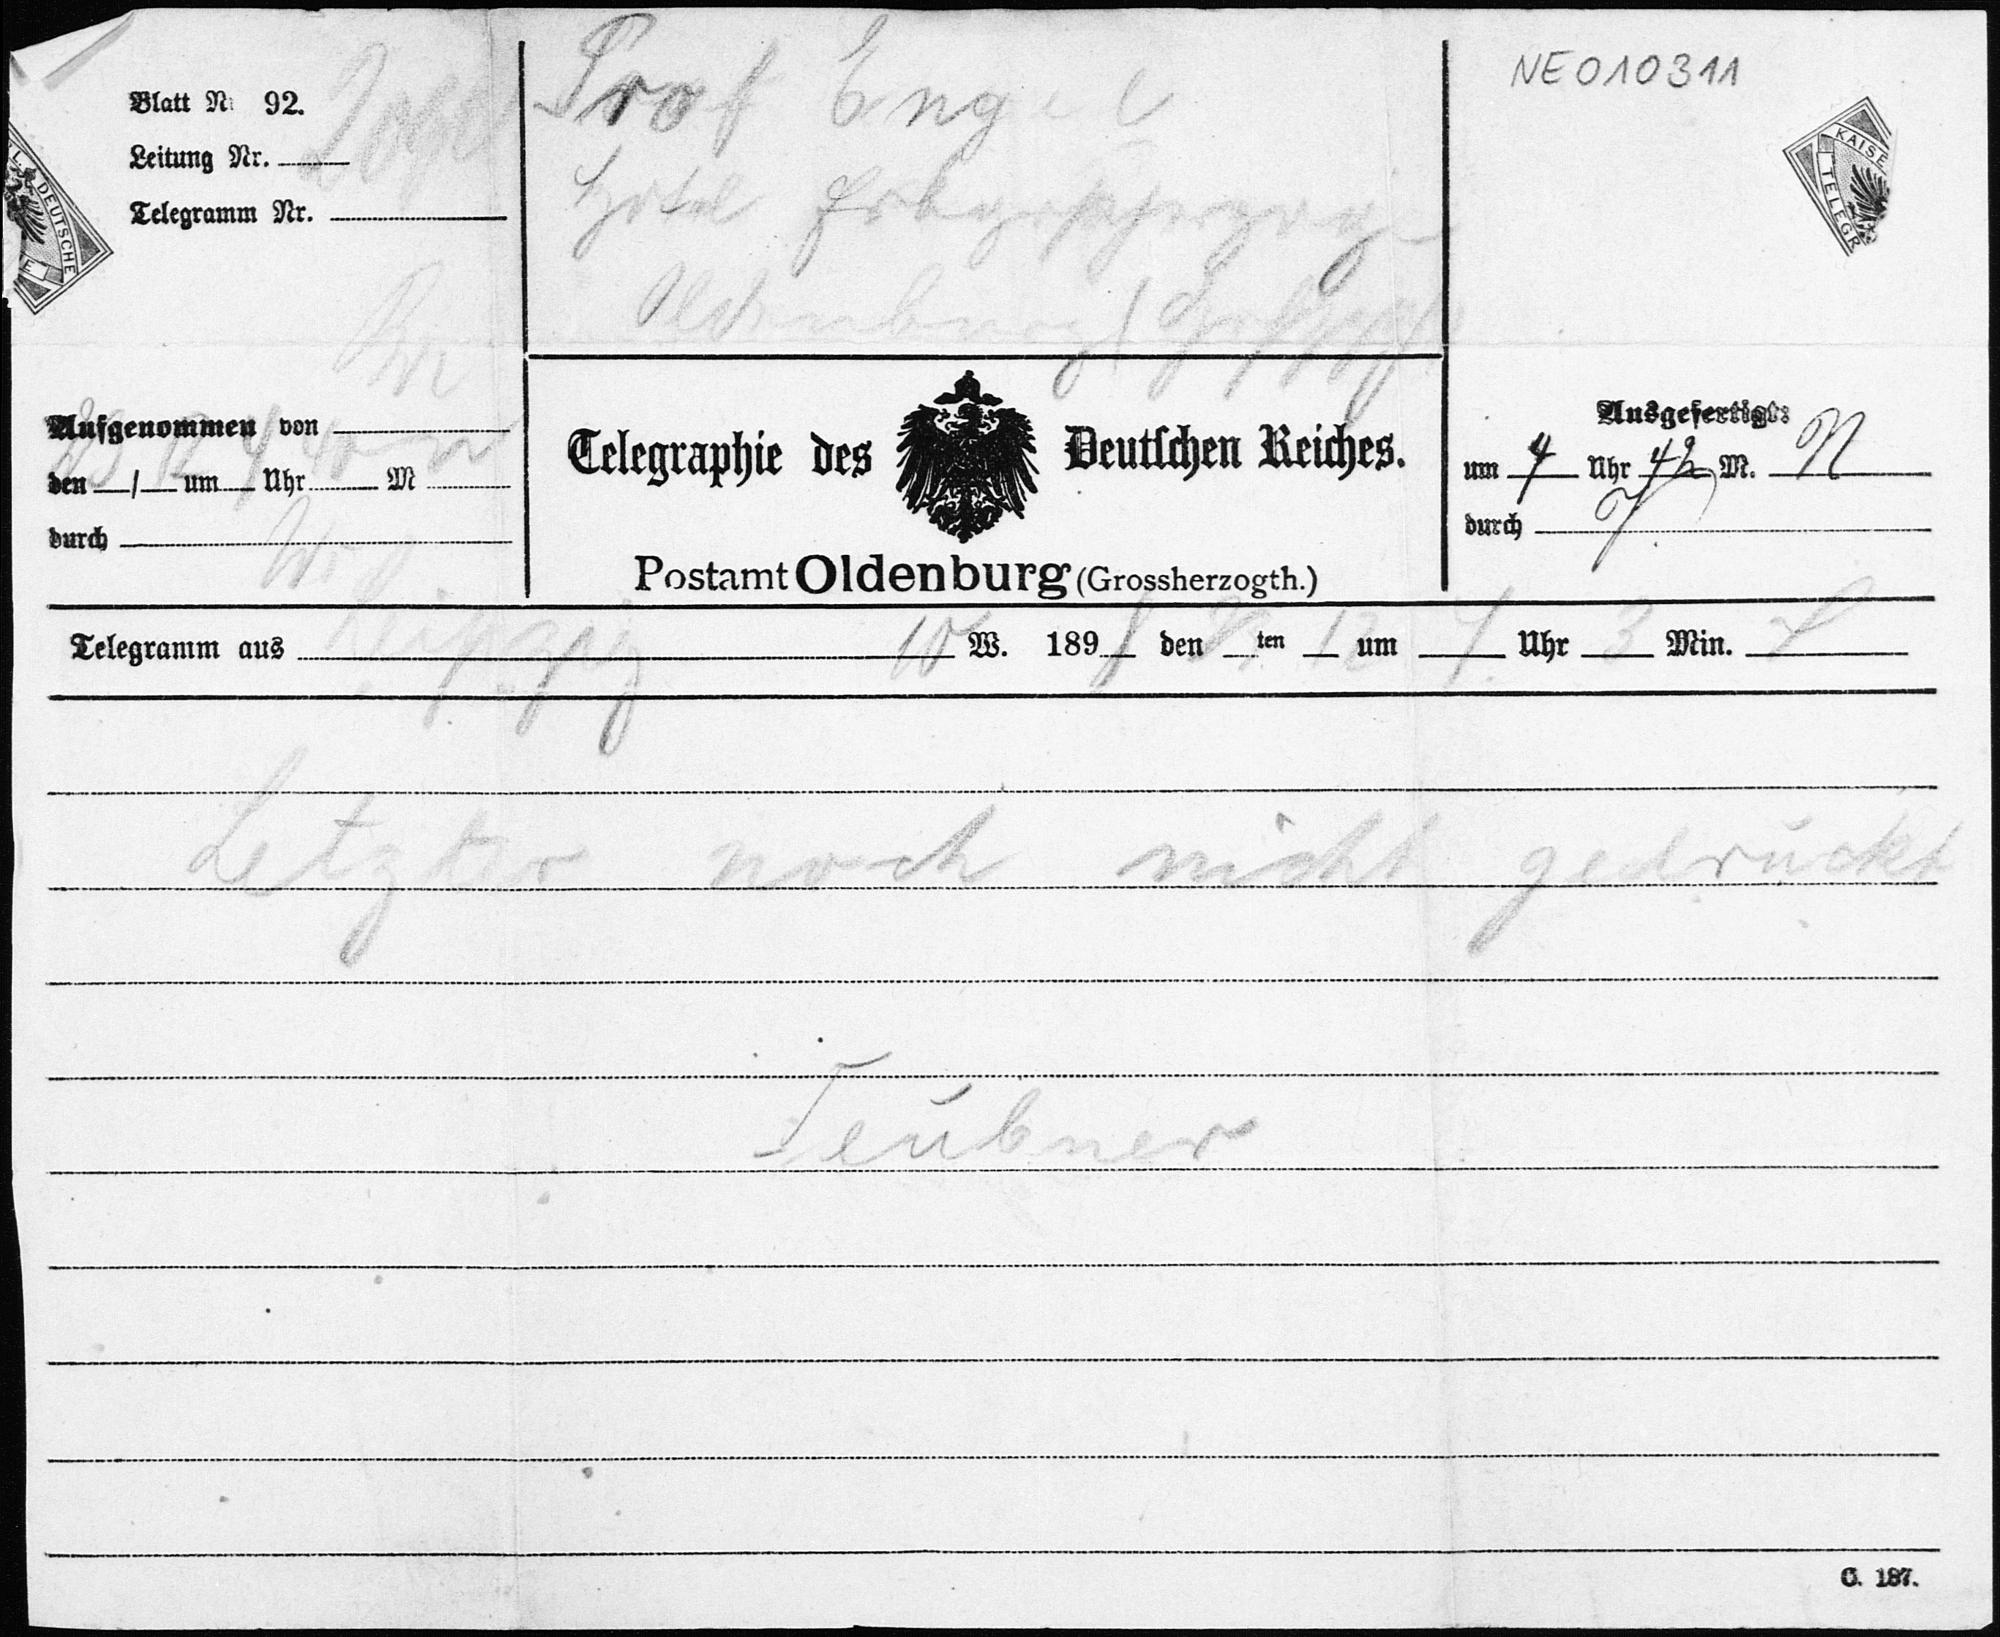 NE010311
Blatt Nr. 92.
Leitung Nr.
Telegramm Nr.
L. DEUTSCHE
Prof Engel
Hotel Erbgrossherzog
Oldenburg
KAISE
TELEGR
Aufgenommen von
den / um Uhr M
durch
Telegraphie des Deutschen Reiches.
Postamt Oldenburg (Grossherzogth.)
Ausgefertigt:
um 4 Uhr 42 M. N
durch
Telegramm aus Leipzig 10 W. 1898 den ten 12 um 4 Uhr 3 Min.
Letzter noch nicht gedruckt
Teubner
C. 187.